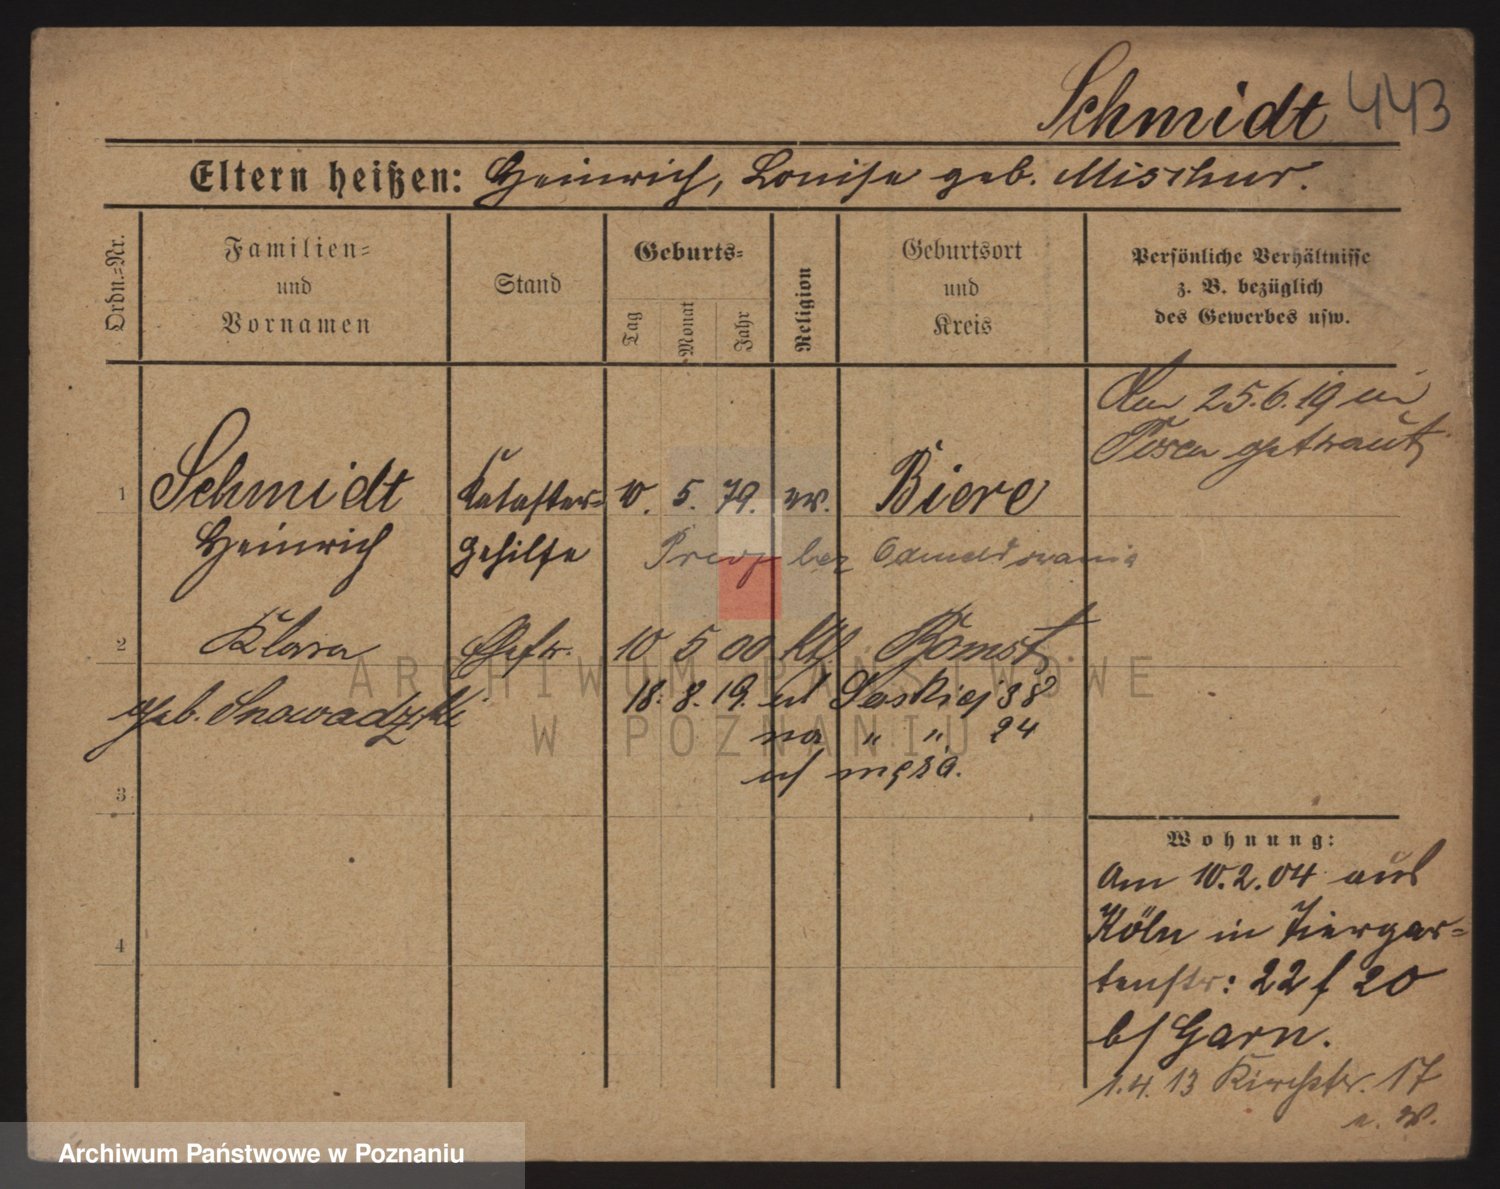 Schmidt 443
Eltern heißen: Heinrich, Louise geb. Mischur.
Ordn.=Nr.
Familien=
und
Vornamen
Stand
Geburts=
Tag
Monat
Jahr
Religion
Geburtsort
und
Kreis
Persönliche Verhältnisse
z. B. bezüglich
des Gewerbes usw.
Am 25.6.19 in
Posen getraut
1 Schmidt Kataster= 10. 5. 79. ev. Biere
Heinrich gehilfe bez Odmeldowania
2 Klara Ehefr. 10 5 00 kth Bomst
geb. Snowadzki 18. 8. 19. ul Saskiej 38
na " " 24
męża.
3
4
Wohnung:
Am 10.2.04 aus
Köln in Tiergar=
tenstr: 22 f 20
b/ Garn.
1.4.13 Kirchstr. 17
ARCHIWUM PAŃSTWOWE
W POZNANIU
Archiwum Państwowe w Poznaniu